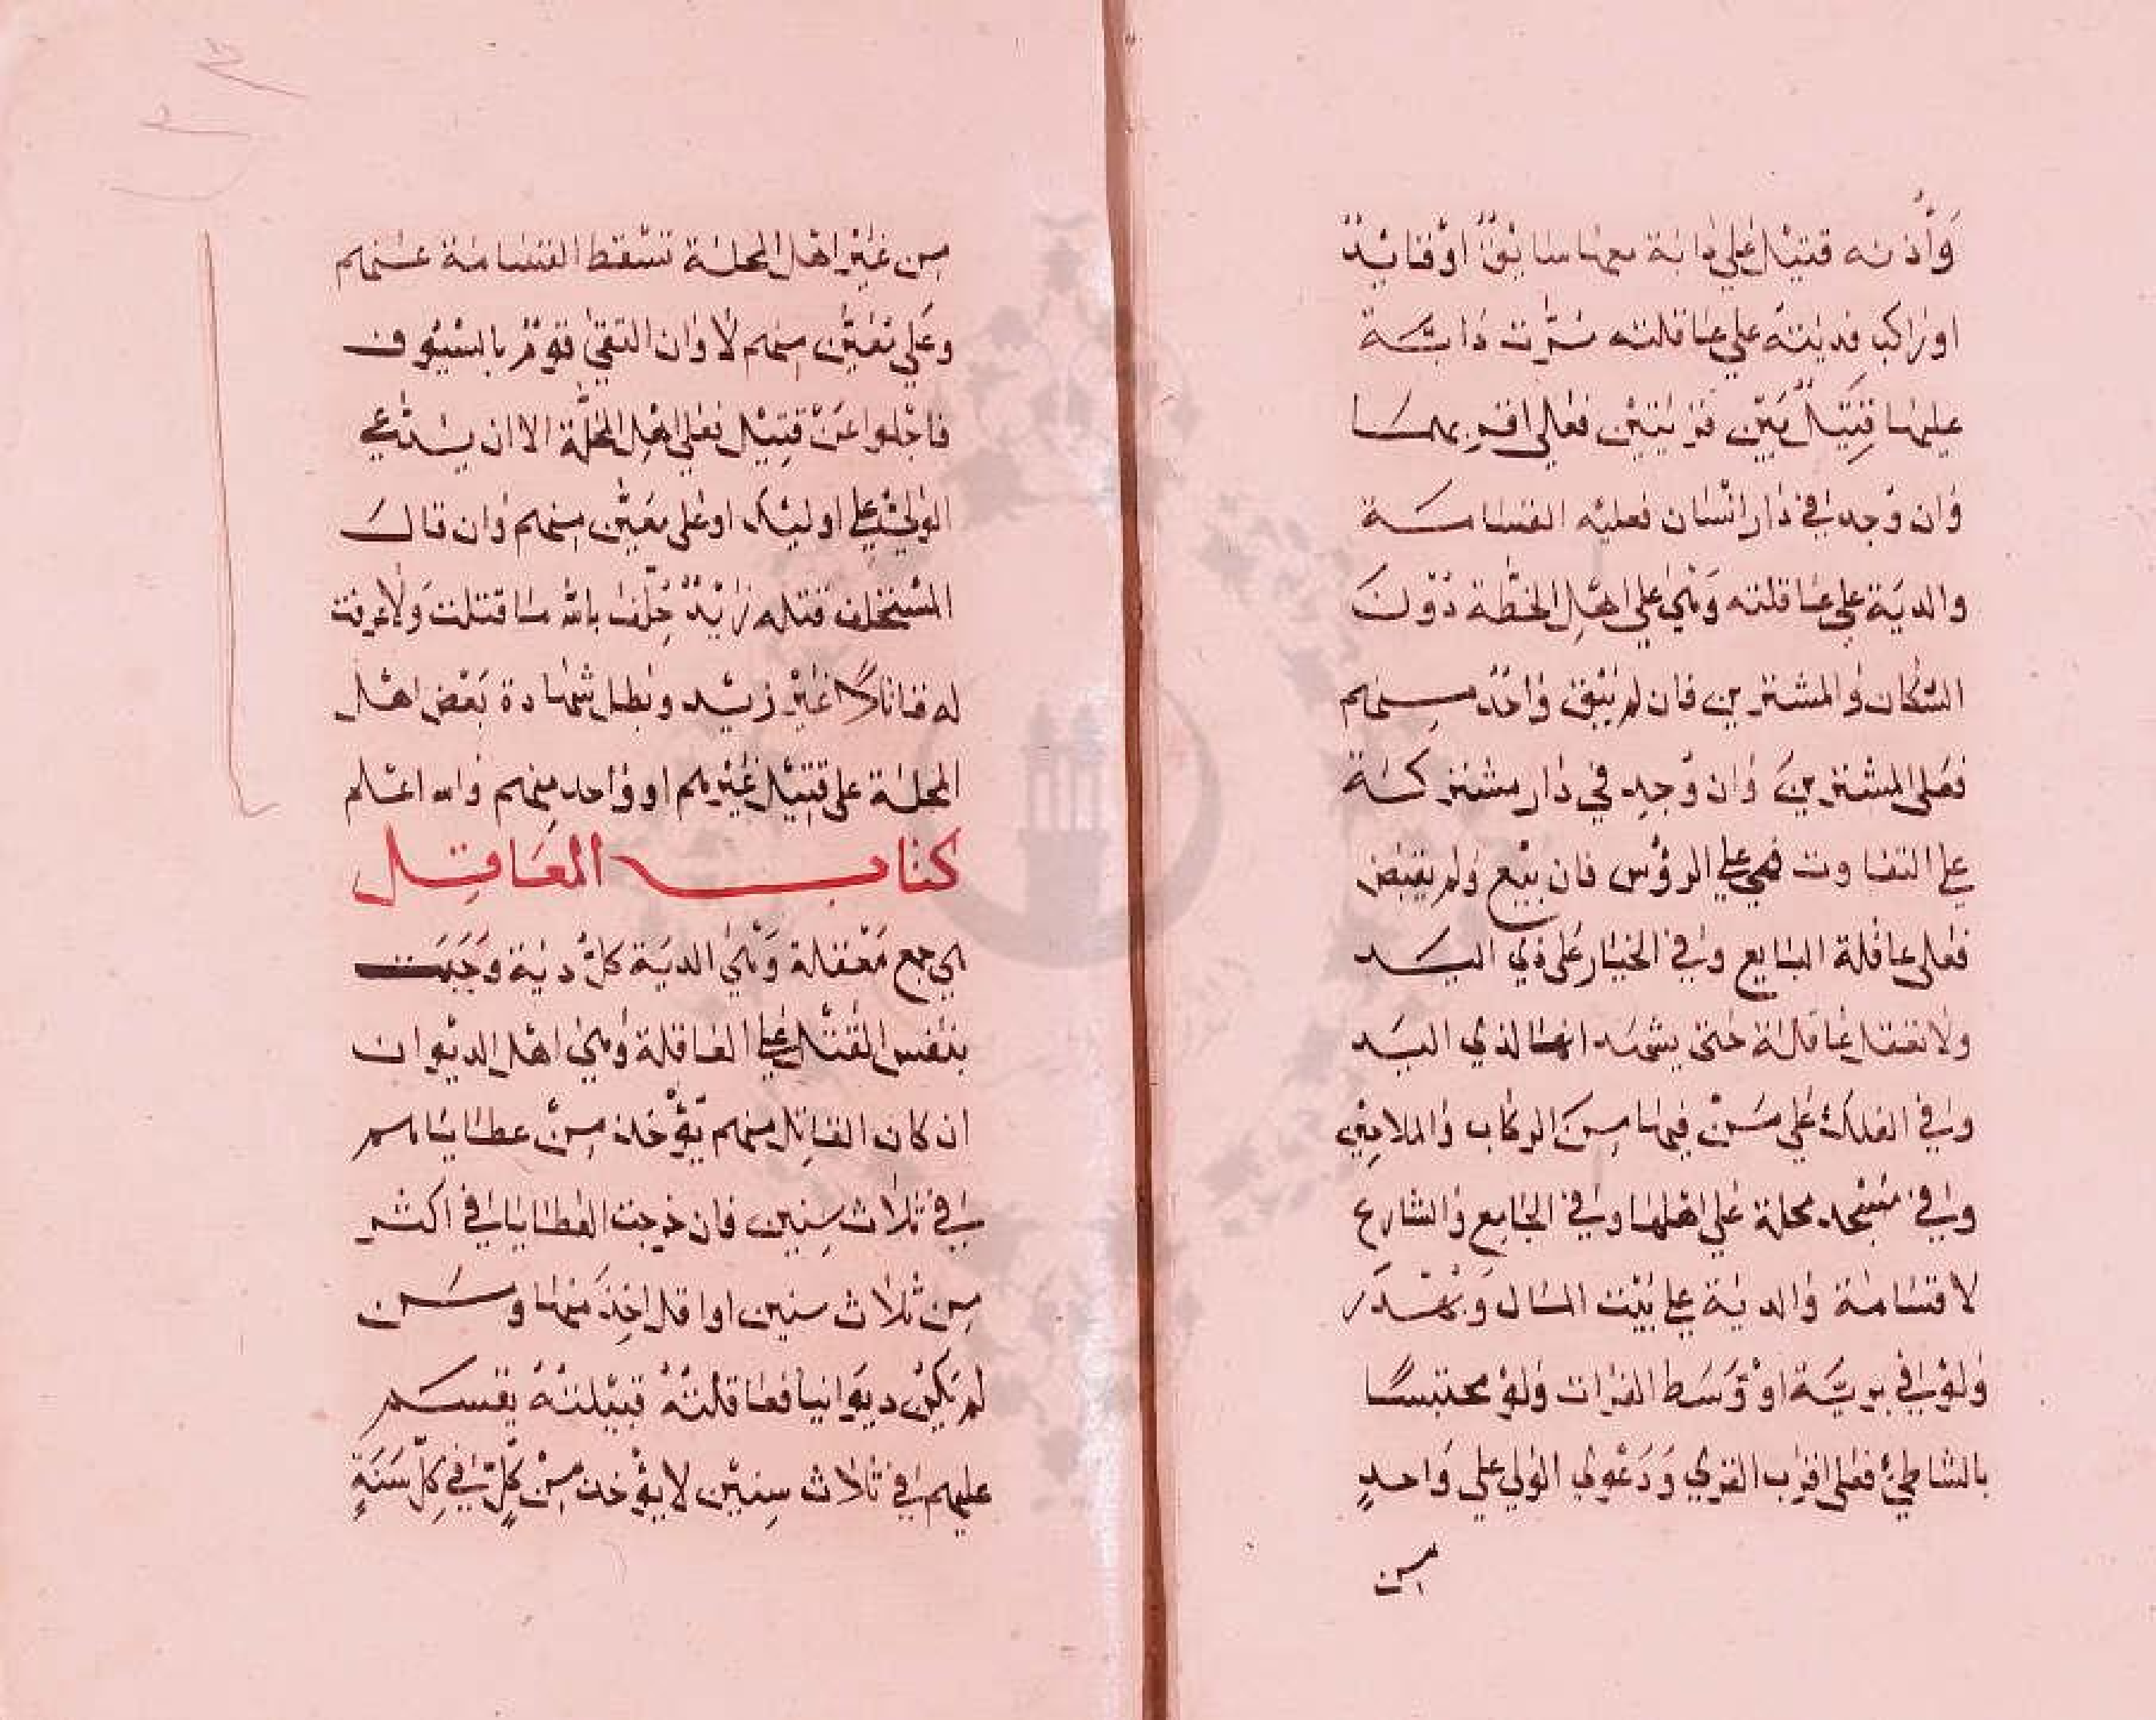 وأذنه قتيل على دابة معها سايق او قايد
او راكب فديته على عاقلته مرت دابة
عليها قتيل بين قريتين فعلى اقربهما
وان وجد في دار انسان فعليه القسامة
والدية على عاقلته وهي على اهل الخطة دون
السكان والمشترين فان لم يبق واحد منهم
فعلى المشترين وان وجد في دار مشتركة
على التفاوت فهي على الرؤس فان بيع ولم يقبض
فعلى عاقلة البايع وفي الخيار على ذي اليد
ولا تعقل عاقلة حتى يشهد انها لذي اليد
وفي الفلك على من فيها من الركاب والملاحين
وفي مسجد محلة على اهلها وفي الجامع والشارع
لا قسامة والدية على بيت المال وتهدر
ولو في برية او وسط الفرات ولو محتبسا
بالشاطئ فعلى اقرب القرى ودعوى الولي على واحد
من
من غير اهل المحلة تسقط القسامة عنهم
وعلى معين منهم لا وان التقى قوم بالسيوف
فاجلوا عن قتيل فعلى اهل المحلة الا ان يدعي
الولي على اوليك او على معين منهم وان قال
المستحلف قتله زيد حلف بالله ما قتلت ولا عرفت
له قاتلا غير زيد وبطل شهادة بعض اهل
المحلة على قتيل غيرهم او واحد منهم والله اعلم
كتاب المعاقل
هي جمع معقلة وهي الدية كل دية وجبت
بنفس القتل على العاقلة وهي اهل الديوان
ان كان القاتل منهم تؤخذ من عطاياهم
في ثلاث سنين فان خرجت العطايا في اكثر
من ثلاث سنين او اقل اخذ منها ومن
لم يكن ديوانيا فعاقلته قبيلته يقسم
عليهم في ثلاث سنين لا يؤخذ من كل في كل سنة